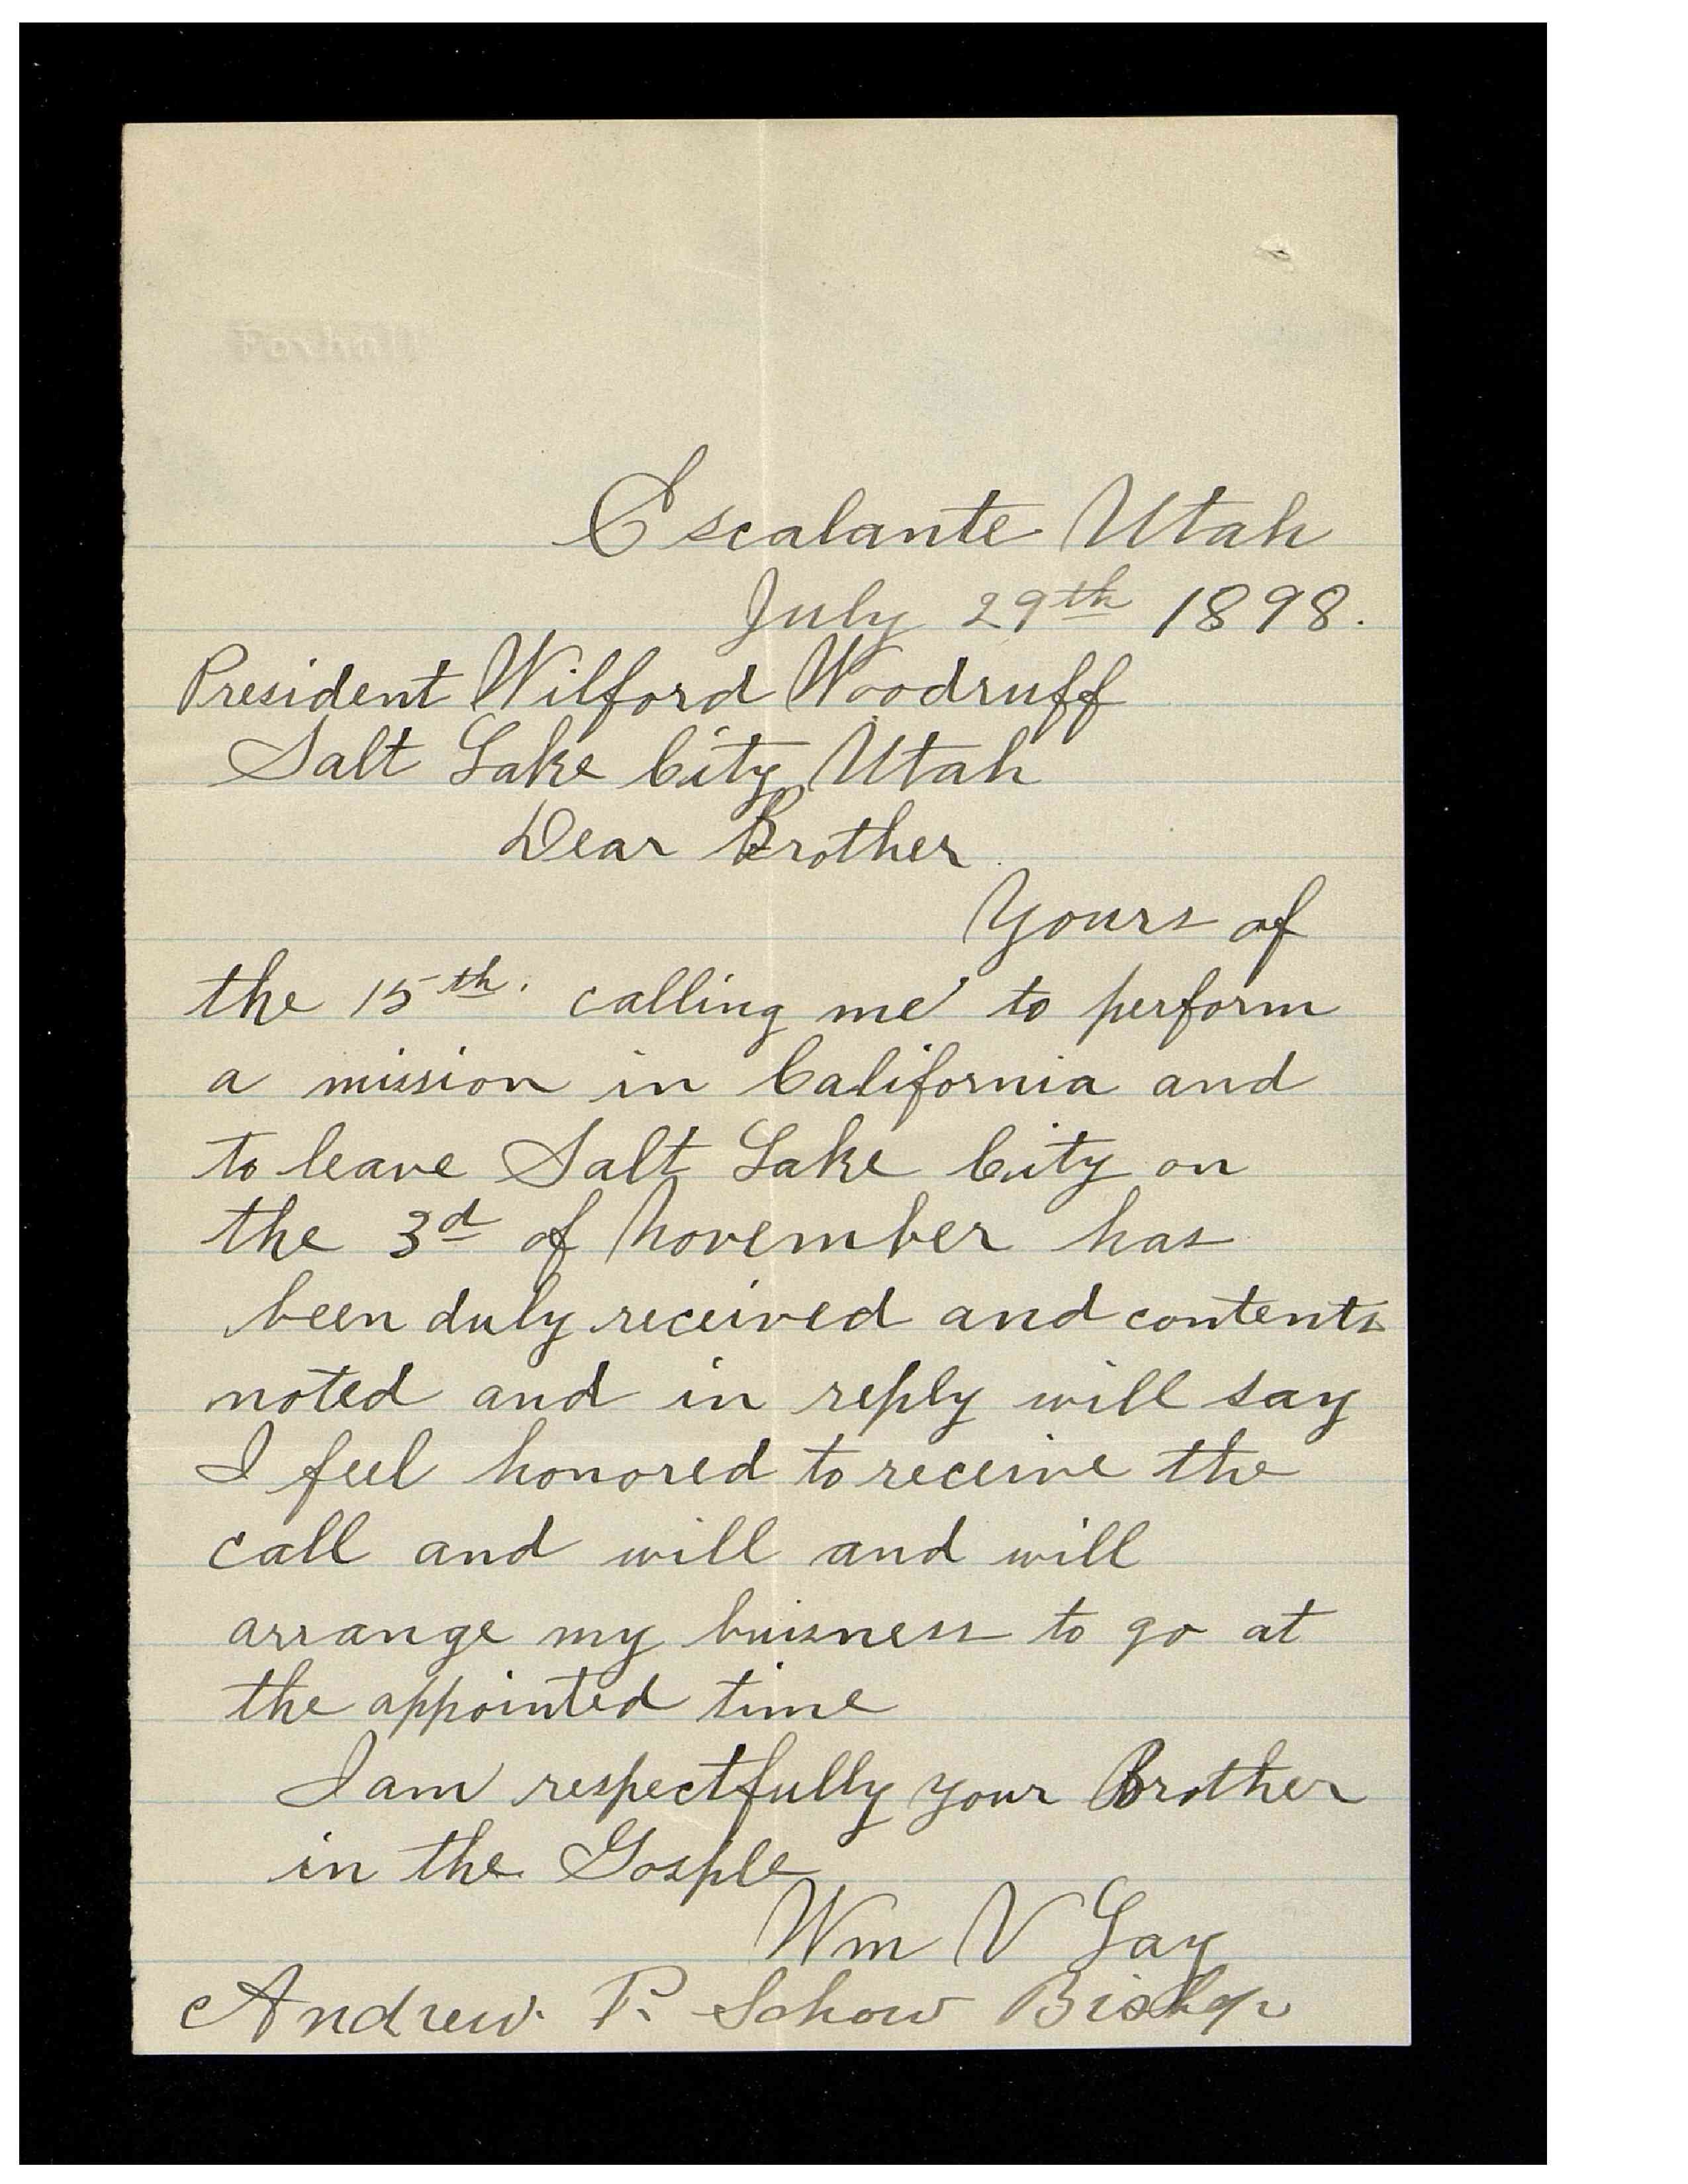 Escalante Utah
July 29th 1898.
President Wilford Woodruff
Salt Lake City Utah
Dear Brother
Yours of
the 15th. calling me to perform
a mission in California and
to leave Salt Lake City on
the 3d of November has
been duly received and contents
noted and in reply will say
I feel honored to receive the
call and will and will
arrange my buisness to go at
the appointed time
I am respectfully your Brother
in the Gosple
Wm V Gay
Andrew. P. Schow Bishop